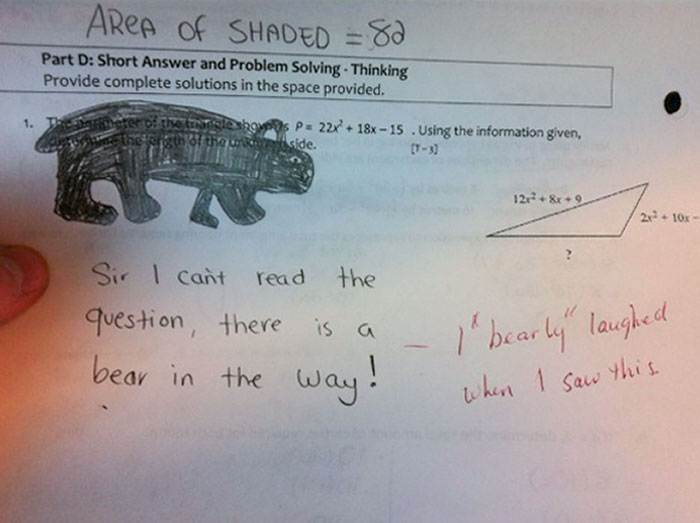 AREA OF SHADED = 82
Part D: Short Answer and Problem Solving - Thinking
Provide complete solutions in the space provided.
1. The perimeter of the triangle shown is P = 22x² + 18x – 15 . Using the information given,
determine the length of the unknown side.
[T-3]
12x² + 8x + 9
2x² + 10x –
?
Sir I can't read the
question, there is a
bear in the way!
– I "bearly" laughed
when I saw this.